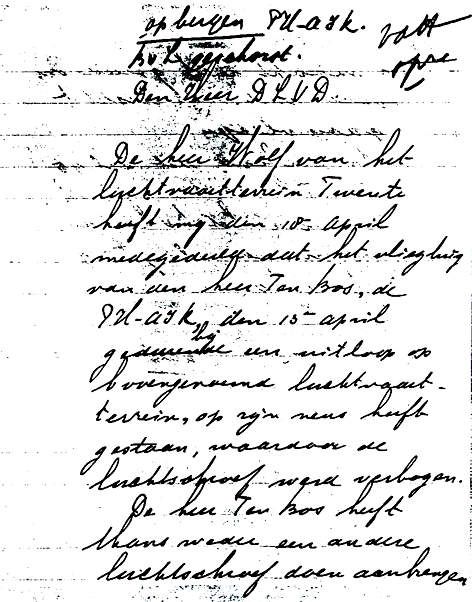 opbergen PH-AJK.
BvL geschorst.
Den Heer D L V D.
De heer Wolf van het
luchtvaartterrein Twente
heeft mij den 18en april
medegedeeld dat het vliegtuig
van den heer Ten Bos, de
PH-AJK, den 15en april
bij een uitloop op
bovengenoemd luchtvaart-
terrein, op zijn neus heeft
gestaan, waardoor de
luchtschroef werd verbogen.
De heer Ten Bos heeft
thans weder een andere
luchtschroef doen aanbrengen